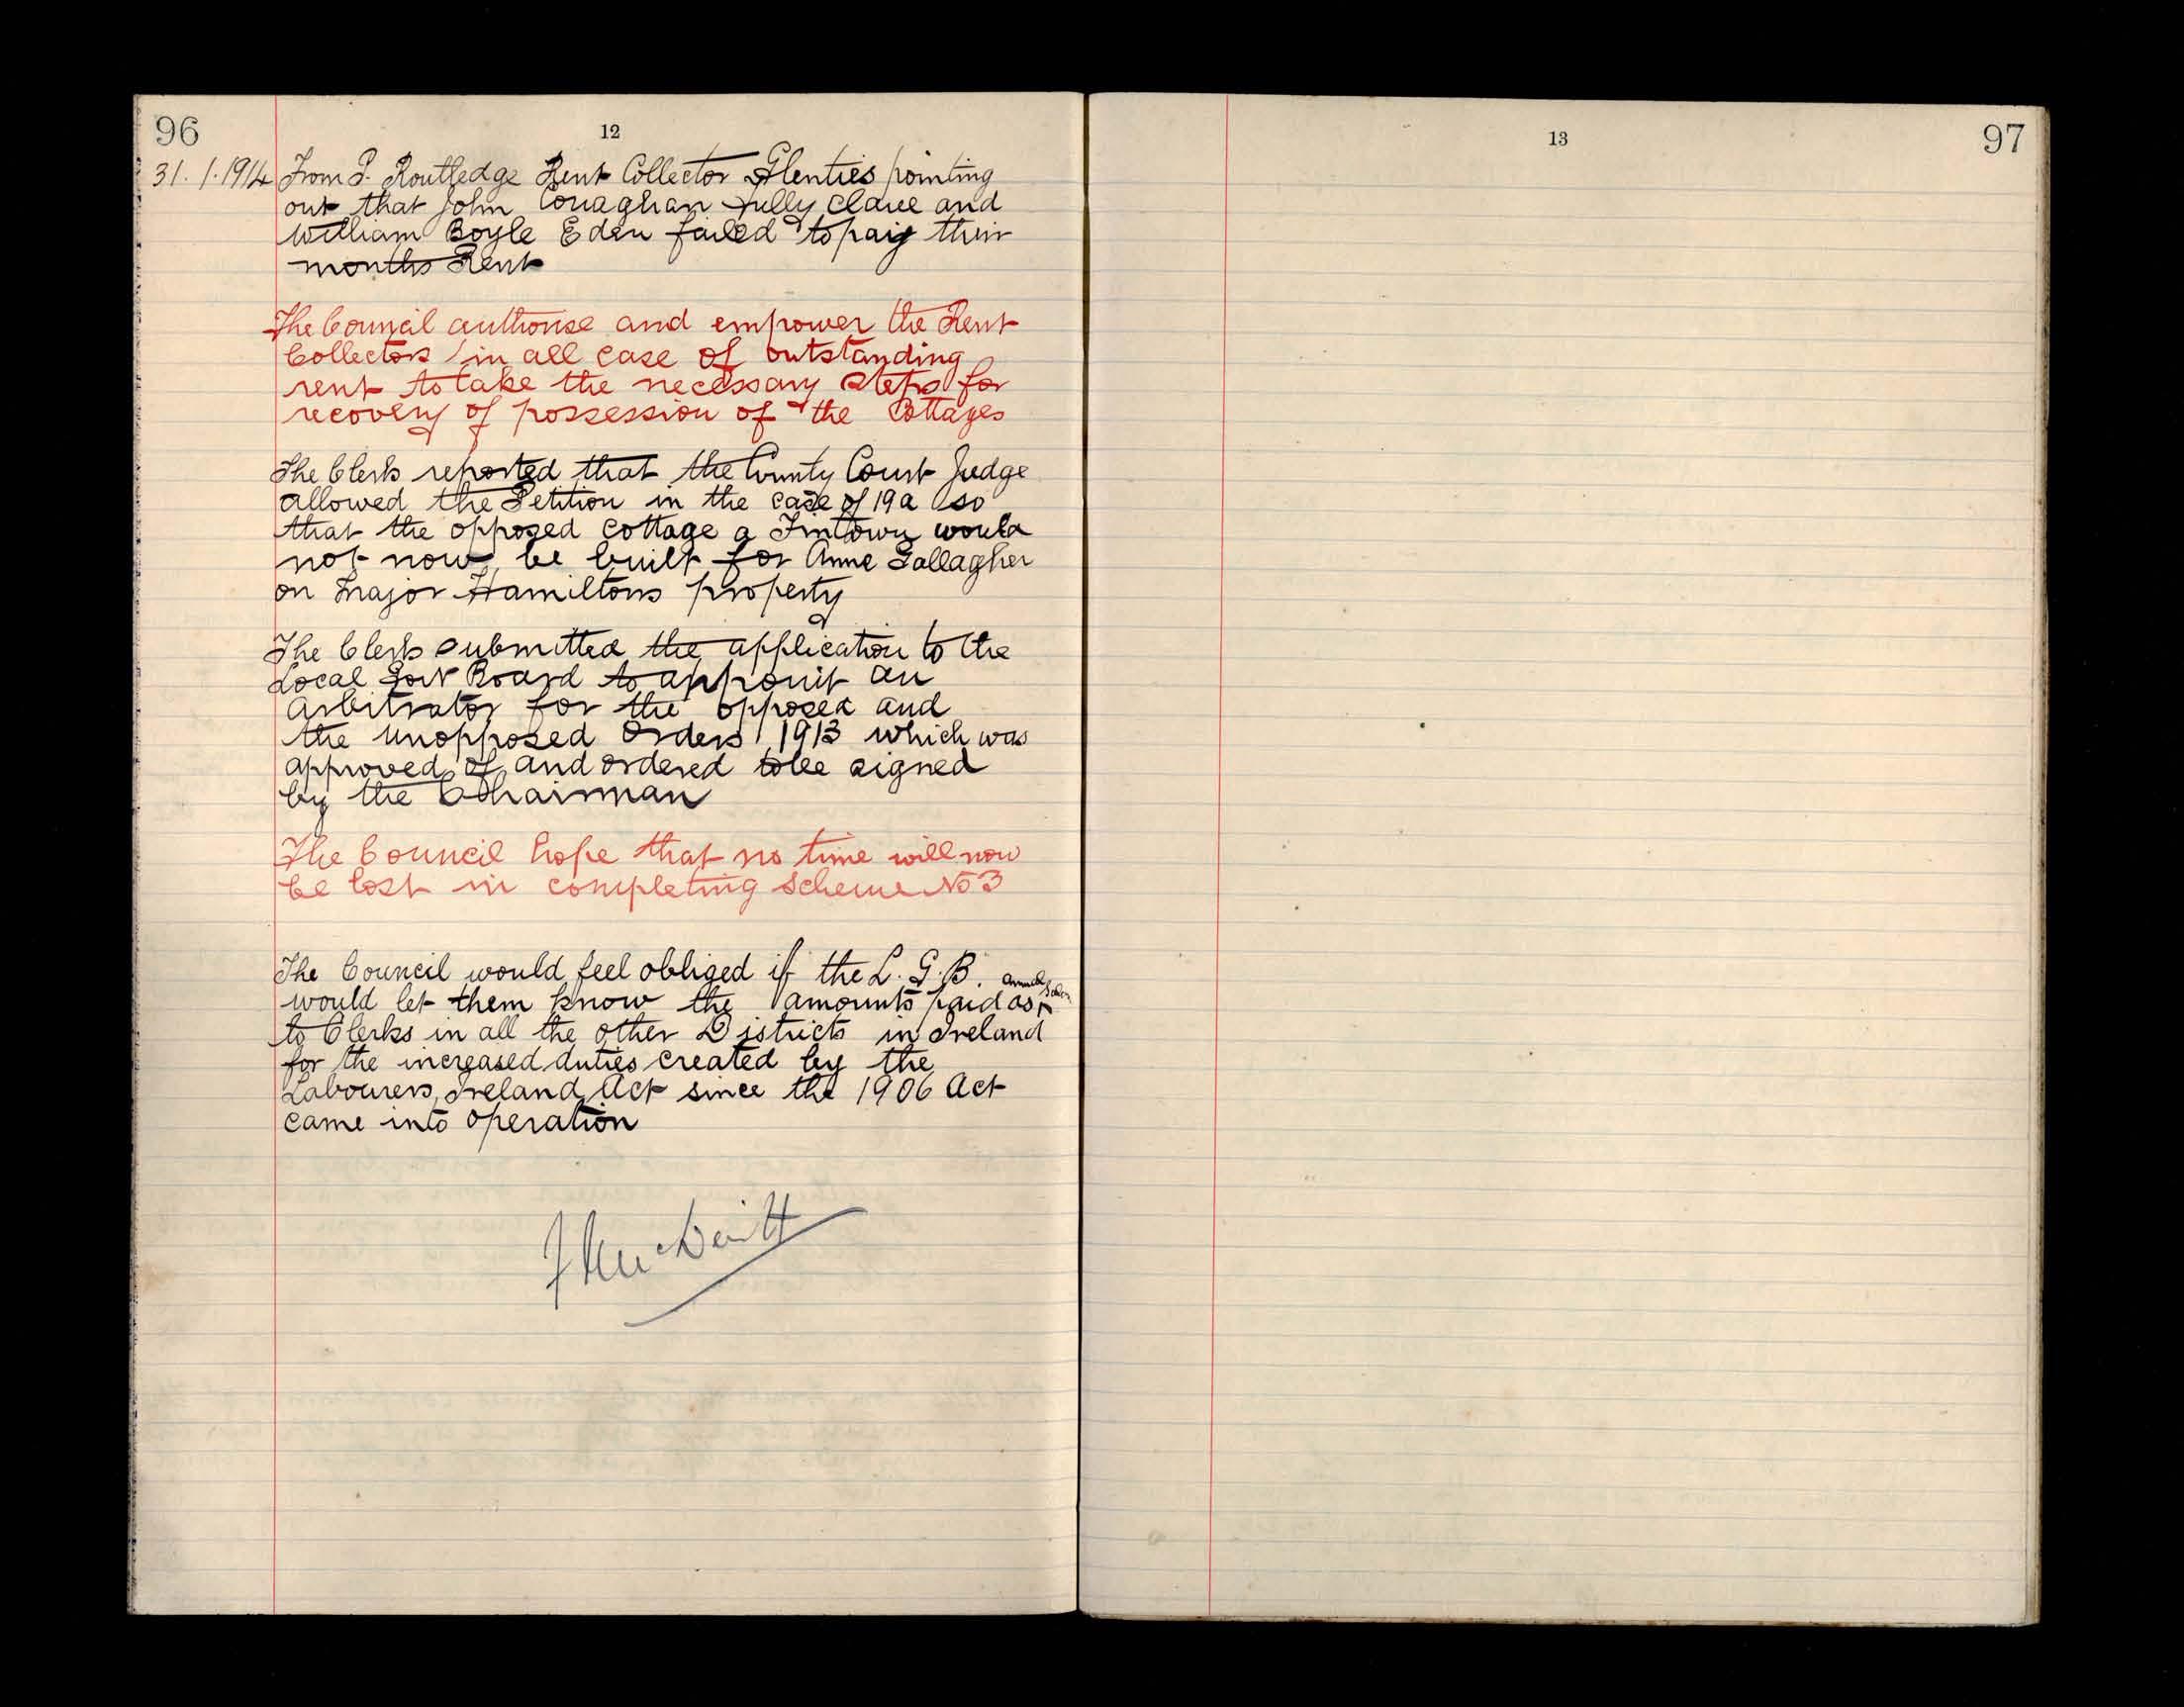 96
12
31.1.1914 From P. Routledge Rent Collector Glenties pointing
out that John Conaghan Tully Clare and
William Boyle Eden failed to pay their
months Rent
The Council authorise and empower the Rent
Collectors in all case of outstanding
rent to take the necessary steps for
recovery of possession of the Cottages
The Clerk reported that the County Court Judge
allowed the Petition in the case of 19a so
that the opposed cottage a Fintown would
not now be built for Anne Gallagher
on Major Hamiltons property
The Clerk submitted the application to the
Local Govt Board to appoint an
arbitrator for the opposed and
the unopposed Orders 1913 which was
approved of and ordered to be signed
by the Chairman
The Council hope that no time will now
be lost in completing Scheme No 3
The Council would feel obliged if the L. G. B.
would let them know the amounts paid as
to Clerks in all the other Districts in Ireland
for the increased duties created by the
Labourers, Ireland, Act since the 1906 Act
came into operation
13
97